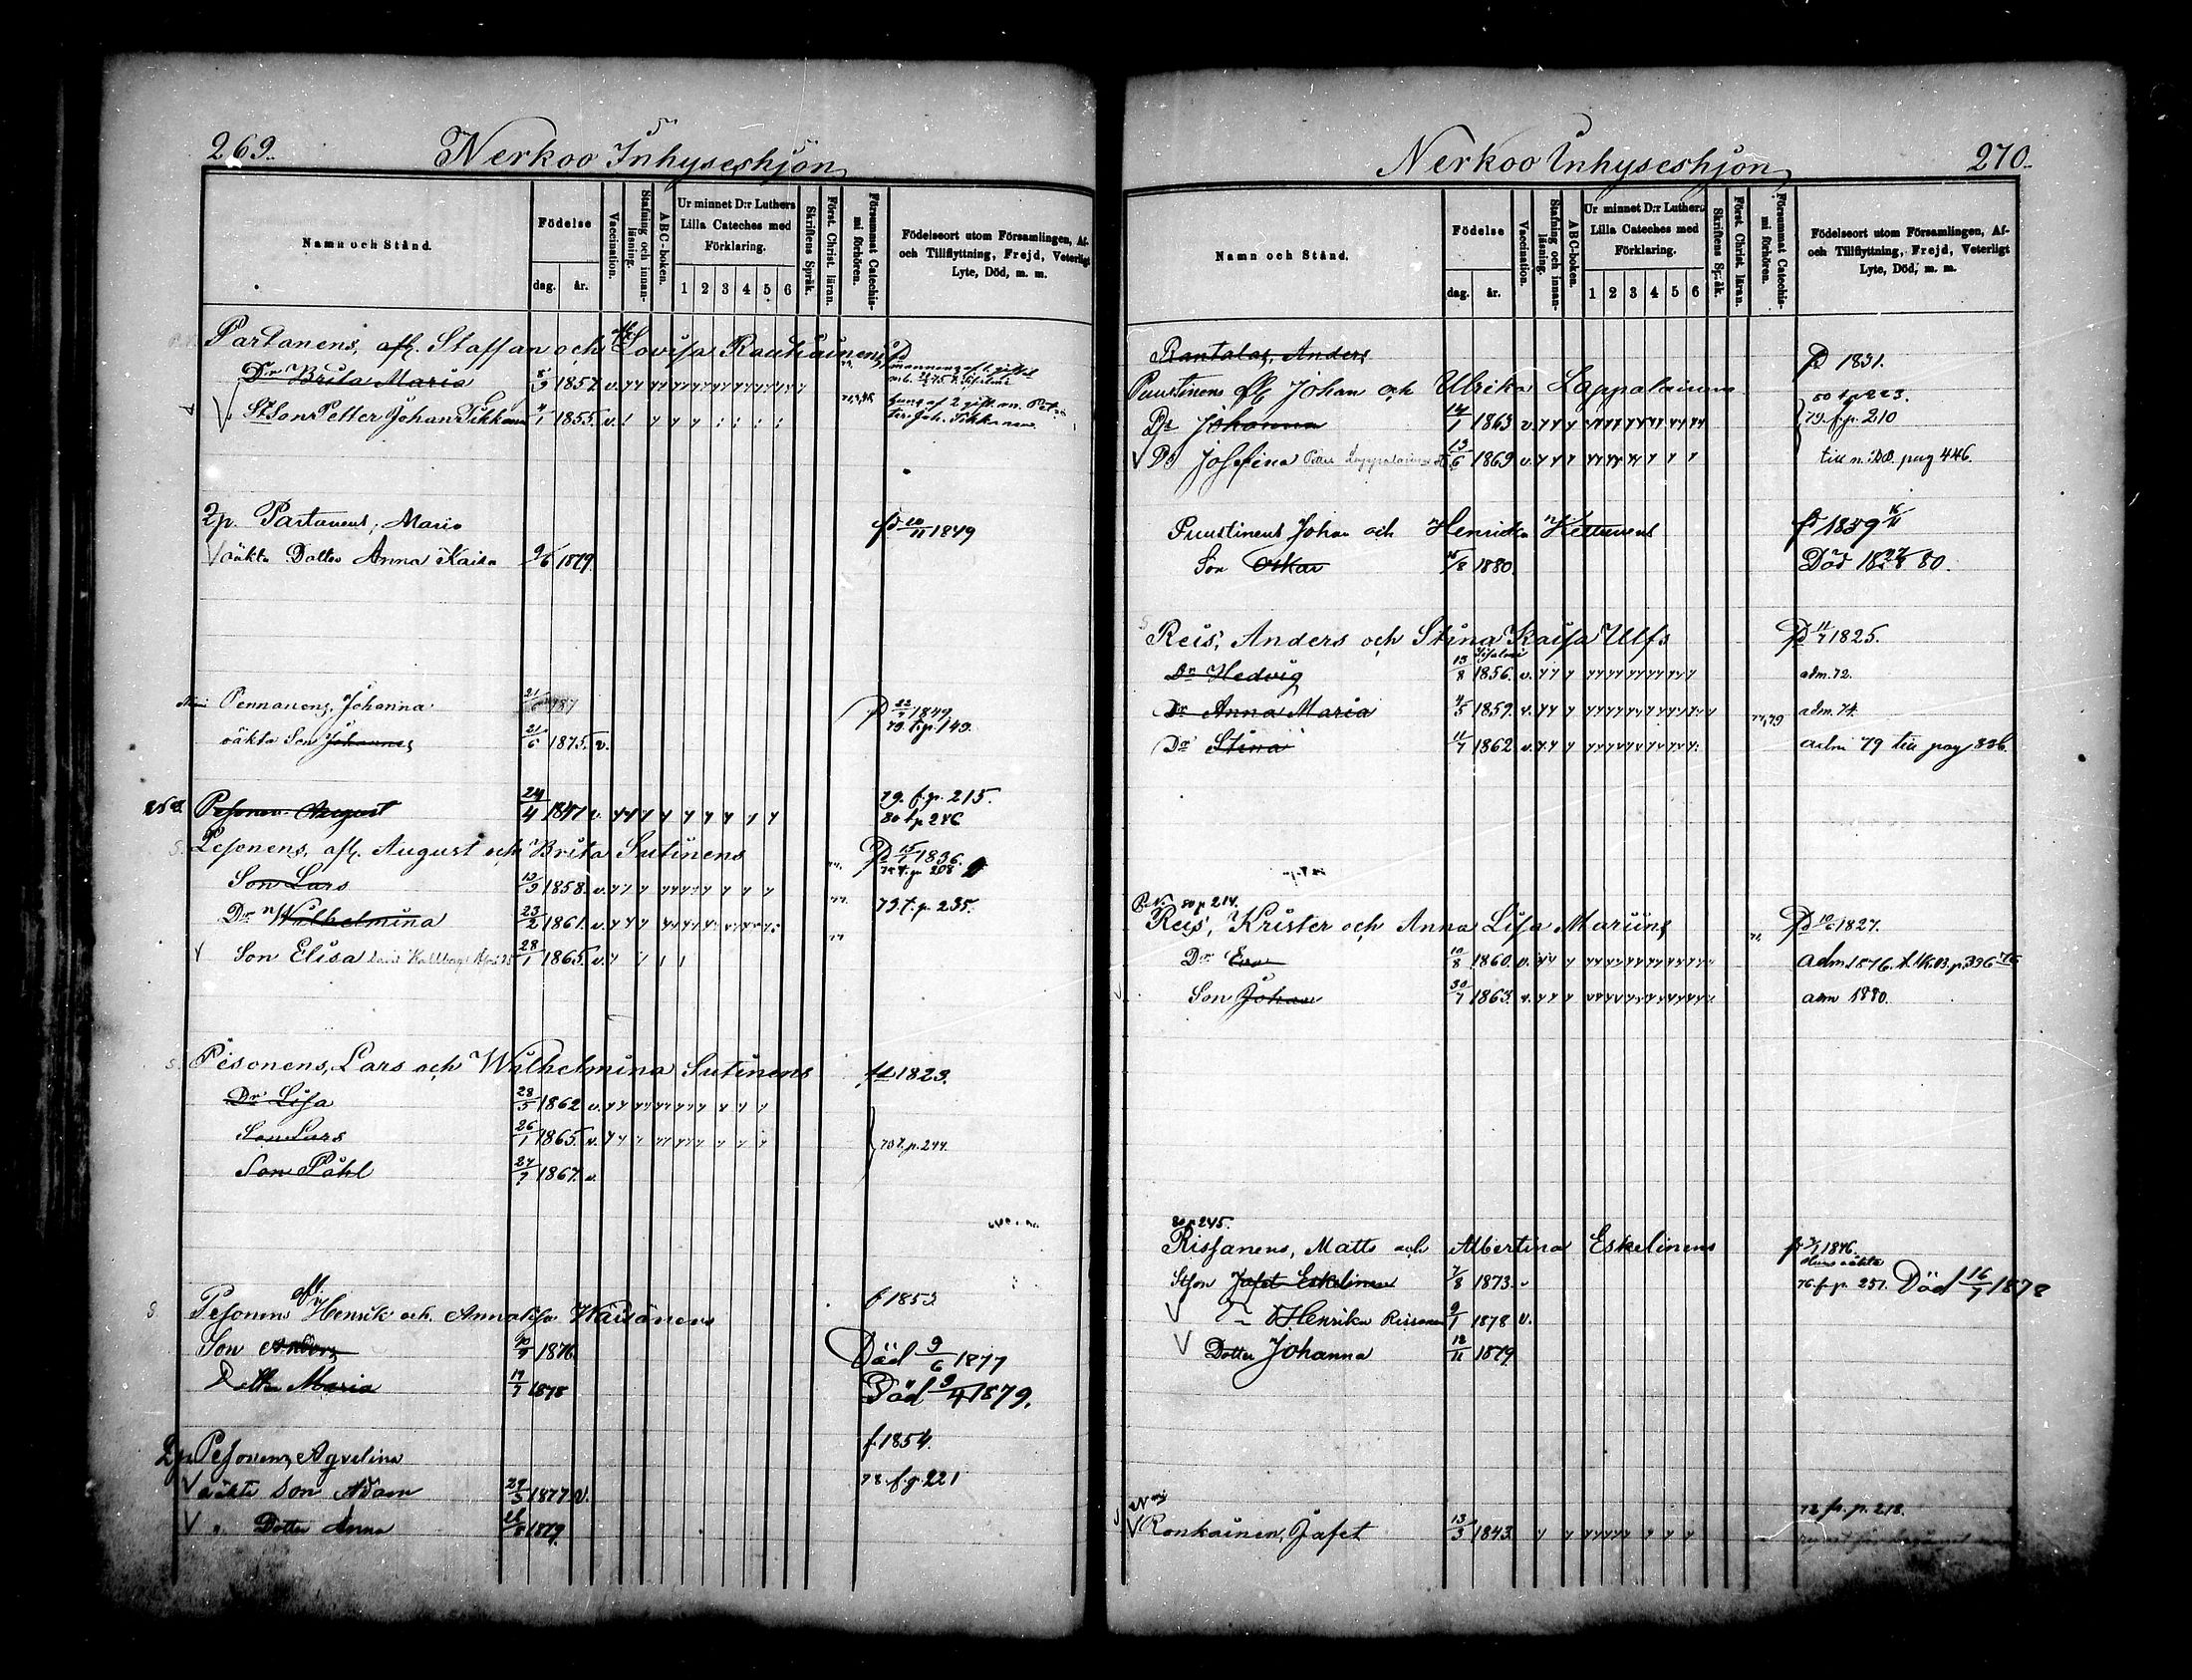 269.
Nerkoo Inhyseshjon
Namn och Stånd.
Födelse
dag. år.
Vaccination.
Stafning och innanläsning.
ABC-boken.
Ur minnet D:r Luthers Lilla Cateches med Förklaring.
1 2 3 4 5 6
Skriftens Språk.
Först. Christ. läran.
Försummat Catechismi förhören.
Födelseort utom Församlingen, Af- och Tillflyttning, Frejd, Veterligt Lyte, Död, m. m.
Partanens, afl. Staffan och Lovisa
Dr Brita Maria 1857. v.
St Son Petter Johan Tikkanen 4/1 1855. v.
2p. Partanens, Maria 1849
oäkta Dotter Anna Kaisa 9/6 1879.
Pennanens, Johanna 22/7 1849 79. t. p. 149.
oäkta Son Johannes 21/6 1875. v.
Pesonen August 24/4 1847 v. 79. f. p. 215.
80 t p 246
Pesonens, afl. August och Brita Sutinens 15/1 1836.
Son Lars 13/9 1858. v.
Dr Wilhelmina 23/2 1861. v. 79. t. p. 235.
Son Elisa 28/1 1865. v.
Pesonens, Lars och Wilhelmina Sutinens 1823.
Dr Lisa 28/5 1862 v.
Son Lars 26/1 1865. v.
Son Påhl 1867. v.
Pesonens afl. Henrik och Annalisa Wäisänens f 1853
Son Anders 1876 Död 9/6 1877
Dotter Maria 17/7 1878 Död 9/4 1879.
2p Pesonens, Agvelina f. 1854.
oäkta Son Adam 1877. v. 78. f. p. 221
" Dotter Anna 1879.
Nerkoo Inhyseshjon
270.
Namn och Stånd.
Födelse
dag. år.
Vaccination.
Stafning och innanläsning.
ABC-boken.
Ur minnet D:r Luthers Lilla Cateches med Förklaring.
1 2 3 4 5 6
Skriftens Språk.
Först. Christ. läran.
Försummat Catechismi förhören.
Födelseort utom Församlingen, Af- och Tillflyttning, Frejd, Veterligt Lyte, Död, m. m.
Rantalas, Anders 1831.
Puustinens afl Johan och Ulrika Lappalainens
Dr Johanna 14/1 1863 v. 79. f. p. 210
Dr Josefina 13/6 1869 v. till pag 446.
Puustinens Johan och Henrika Kettunens fd 1859
Son Oskar 1880. Död 80.
Reis, Anders och Stina Kaisa Ulfs 11/7 1825.
Dr Hedvig 13/8 1856. v. adm. 72.
Dr Anna Maria 4/5 1859. v. adm. 74.
Dr Stina 11/7 1862 v. adm 79 till pag 336.
80 p 214.
Reis, Krister och Anna Lisa Mariins 1827.
Dr Eva 10/8 1860. v. adm 1876.
Son Johan 30/7 1863. v. adm 1880.
80 p 245.
Rissanens, Matts och Albertina Eskelinens 1846.
St son Jafet Eskelinen 7/8 1873. v 76. f. p. 251. Död 16/7 1878
Henrika Rissanen 9/1 1878 v.
Dotter Johanna 12/11 1879
Ronkainen, Jafet 13/3 1843. 72 fr. p. 218.